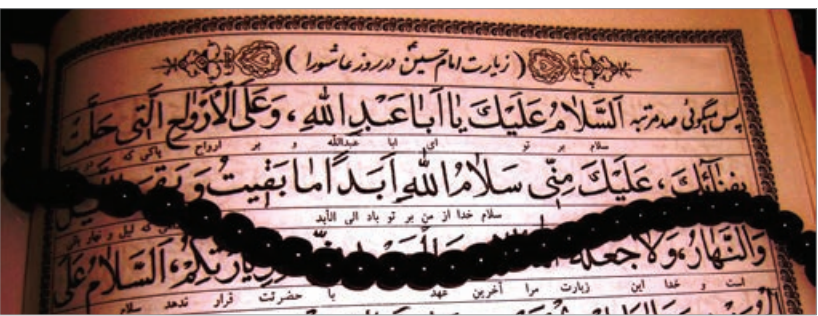 ( زیارت امام حسین در روز عاشورا )
پس میگوئی صد مرتبه اَلسَّلامُ عَلَیْكَ یا اَبا عَبْدِ اللهِ ، وَعَلَى الْاَرْواحِ الَّتی حَلَّتْ
سلام بر تو ای ابا عبدالله و بر ارواح پاکی که
بِفِنائِكَ ، عَلَیْكَ مِنّی سَلامُ اللهِ اَبَداً ما بَقیتُ وَ بَقِیَ اللَّیْلُ
سلام خدا از من بر تو باد الی الأبد که لیل و نهار باقی
وَالنَّهارُ، وَلا جَعَلَهُ زِیارَتِكُمْ، اَلسَّلامُ عَلَى
است و خدا این زیارت مرا آخرین عهد با حضرتت قرار ندهد سلام